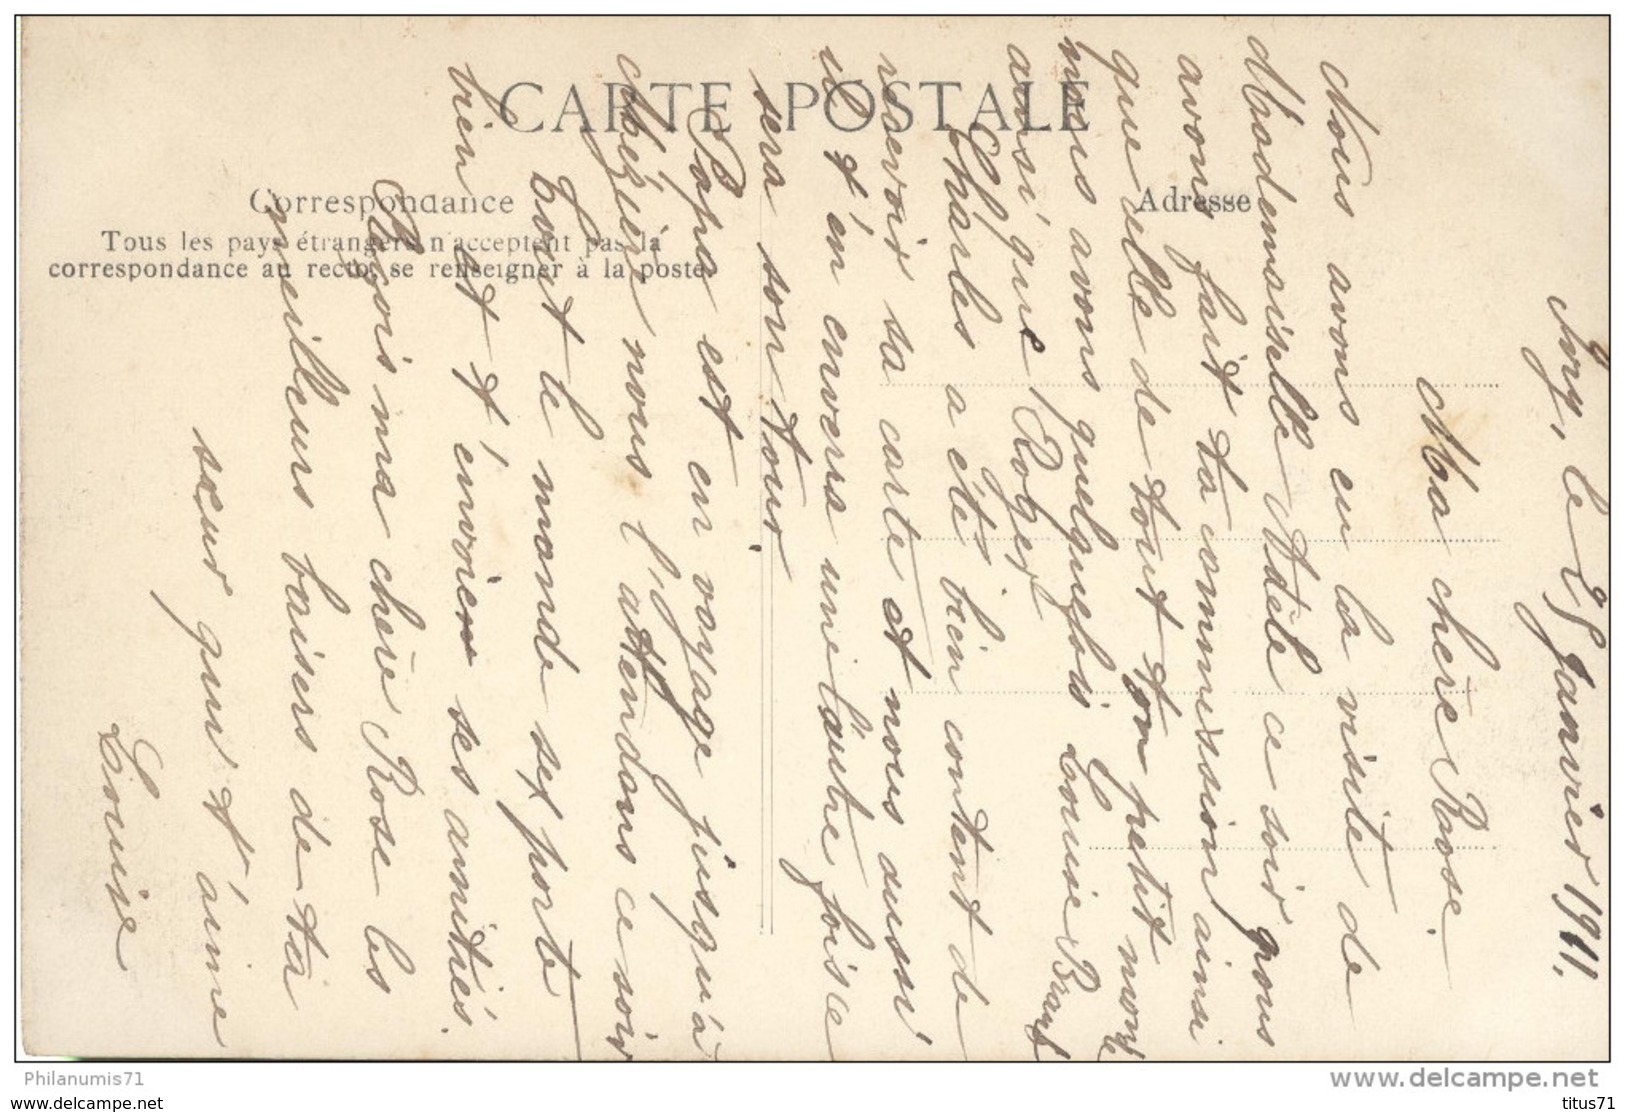 CARTE POSTALE
Correspondance
Adresse
Tous les pays étrangers n'acceptent pas la
correspondance au recto, se renseigner à la poste
le 29 Janvier 1911.
Ma chère Rose.
Nous avons eu la visite de
Mademoiselle Adèle ce soir nous
avons fait ta commission ainsi
que celle de tout ton petit monde
nous avons quelquefois Louise
ainsi que Roger
Charles a été bien content de
recevoir sa carte et nous aussi
il t'en envera une autre fois ce
sera son tour
Papa est en voyage jusqu'à
nous l'attendons ce soir
Tout le monde se porte
bien et t'envoie ses amitiés.
Reçois ma chère Rose les
meilleurs baisers de ta
sœur qui t'aime
Louise
Philanumis71
www.delcampe.com
www.delcampe.com
titus71